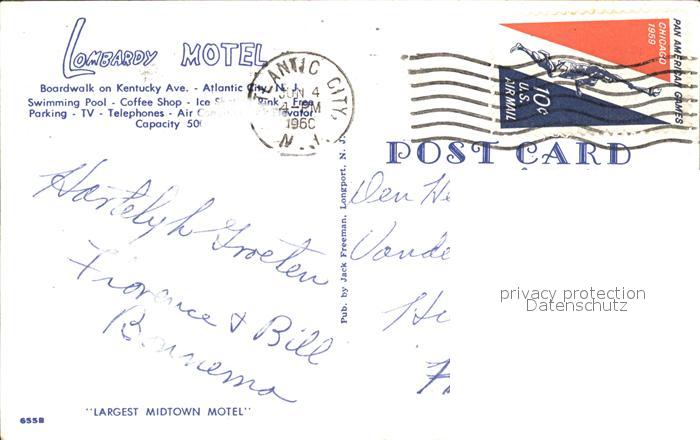 LOMBARDY MOTEL
Boardwalk on Kentucky Ave. - Atlantic City, N. J.
Swimming Pool - Coffee Shop - Ice Rink - Free
Parking - TV - Telephones - Air Elevator
Capacity 500
ATLANTIC CITY,
JUN 4
4-PM
1960
N. J.
PAN AMERICAN GAMES
CHICAGO
1959
10¢
U.S.
AIR MAIL
POST CARD
Hartelyk Groeten
Florence & Bill
Bonnema
Pub. by Jack Freeman, Longport, N. J.
Den He
Vande
privacy protection
Datenschutz
"LARGEST MIDTOWN MOTEL"
655B